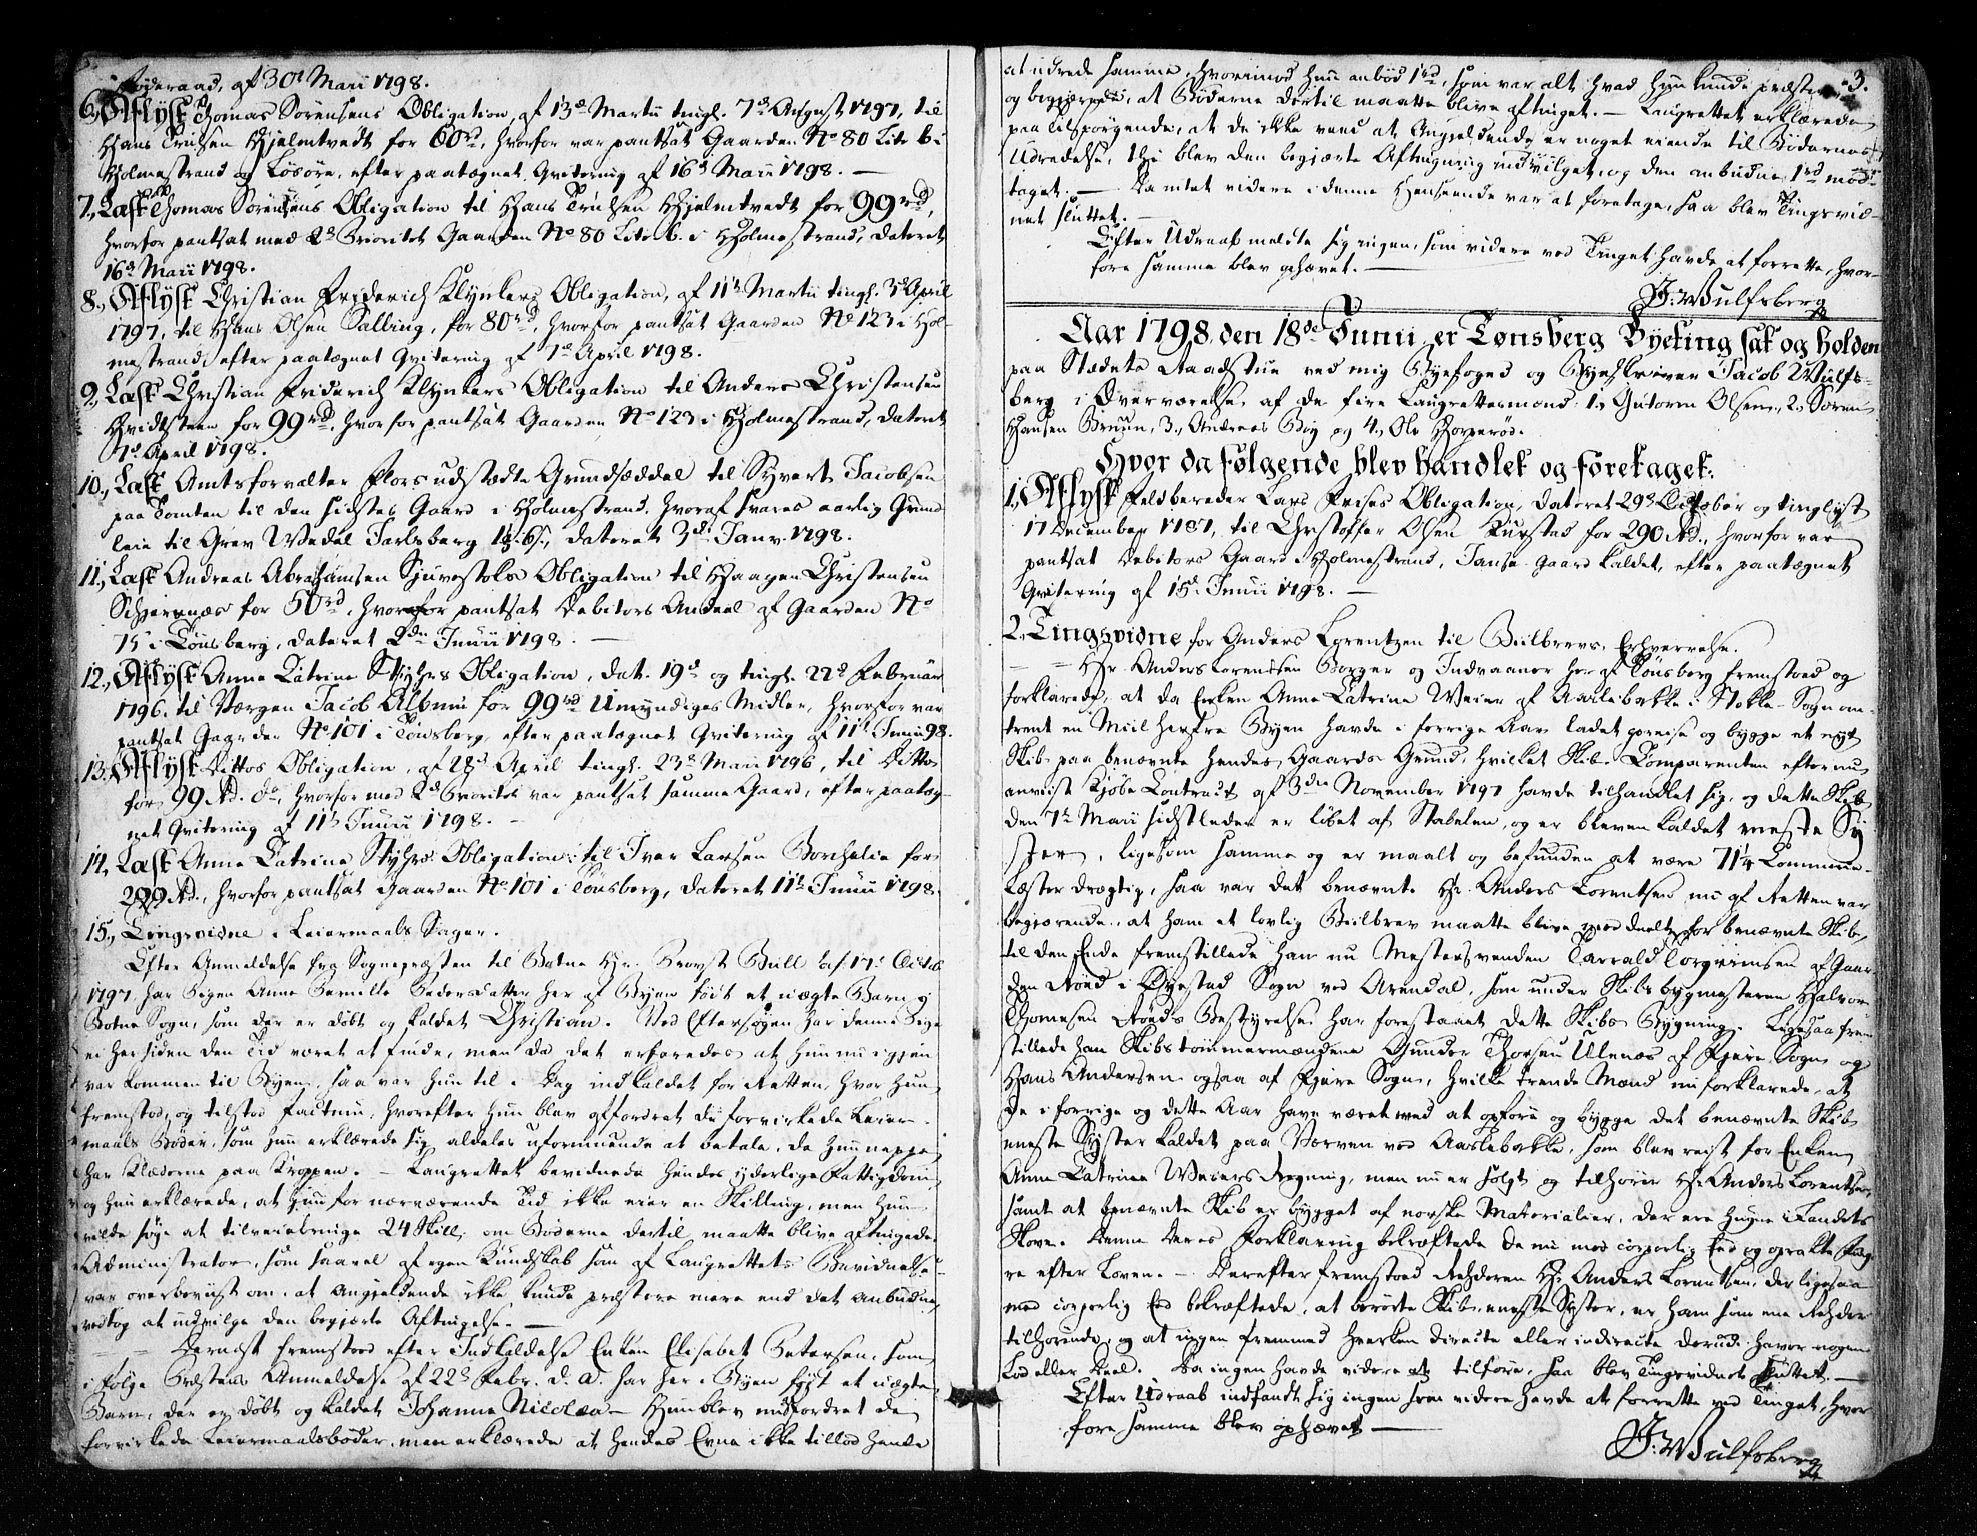 Föderaad, af 30t Maii 1798.
6., Aflyst Thomas Sörensens Obligation, af 13de Martii tingl. 7de August 1797, til
Hans Trulsen Hjelmtvedt for 60rd, hvorfor var pantsat Gaarden No 80 Litr. b. i
Holmestrand og Lösöre, efter paategnet Qvitering af 16d Maii 1798. —
7., Læst Thomas Sörensens Obligation til Hans Trulsen Hjelmtvedt for 99rd,
hvorfor pantsat med 2d Prioritet Gaarden No 80 Litr. b. i Holmestrand, dateret
16d Maii 1798.
8., Aflyst Christian Friderich Klynkers Obligation, af 11t Martii tingl. 3d April
1797, til Hans Olsen Salling, for 80rd, hvorfor pantsat Gaarden No 123 i Hol-
mestrand, efter paategnet Qvitering af 7d April 1798.
9., Læst Christian Friderich Klynkers Obligation til Anders Christensen
Hvidsteen for 99rd, hvorfor pantsat Gaarden No 123 i Holmestrand, dateret
7d April 1798.
10., Læst Amtsforvalter Flors udstædte Grundsæddel til Syvert Jacobsen
paa Tomten til den sidstes Gaard i Holmestrand, hvoraf svares aarlig Grund-
leie til Grev Wedel Jarlsberg, dateret 3d Janv. 1798.
11., Læst Andreas Abrahamsen Sjuvestoks Obligation til Haagen Christensen
for 50rd, hvorfor pantsat Debitors Andeel af Gaarden No
75 i Tönsberg, dateret 2den Junii 1798. —
12., Aflyst Anne Catrine Styhrs Obligation, dat. 19d og tingl. 22d Februar
1796, til Værgen Jacob Album for 99rd Umyndiges Midler, hvorfor var
pantsat Gaarden No 101 i Tönsberg, efter paategnet Qvitering af 11t Junii 98.
13., Aflyst Dittos Obligation, af 28d April tingl. 23d Maii 1796, til Ditto
for 99 Rd. do, hvorfor med 2d Prioritet var pantsat samme Gaard, efter paateg-
net Qvitering af 11t Junii 1798. —
14., Læst Anne Catrine Styhrs Obligation til Iver Larsen Borchelie for
299 Rd., hvorfor pantsat Gaarden No 101 i Tönsberg, dateret 11t Junii 1798.
15., Tingsvidne i Leiermaals Sager.
Efter Anmeldelse fra Sognepræsten til Botne Hr. Provst Bull af 17d Octob.
1797, har Pigen Anne Pernille Pedersdatter her af Byen födt et uægte Barn i
Botne Sogn, som der er döbt og kaldet Christian. Ved Eftersögen har denne Pige
ei her siden den Tid været at finde, men da det erfaredes at hun nu igjen
var kommen til Byen, saa var hun til i Dag indkaldet for Retten, hvor hun
fremstod, og tilstod Factum, hvorefter hun blev affordret de forvirkede Leier-
maals Böder, som hun erklærede sig aldeles uformuende at betale, da hun neppe
har Klæderne paa Kroppen. — Laugrettet bevidnede hendes yderlige Fattigdom,
og hun erklærede, at hun for nærværende Tid ikke eier en Skilling, men hun
vilde söge at tilveiebringe 24 Skill; om Böderne dertil maatte blive aftingede.
Administrator, som saavel af egen Kundskab som af Laugrettets Bevidnelse
var overbeviist om, at angjeldende ikke kunde præstere mere end det anbudne,
vedtog at indvilge den begjerte Aftingelse. —
— — Dernæst fremstod efter Indkaldelse Enken Elisabet Petersen, som
i fölge Præstens Anmeldelse af 22d Febr. d. a. har her i Byen födt et uægte
Barn, der er döbt og kaldet Johanne Nicolea — Hun blev affordret de
forvirkede Leiermaalsböder, men erklærede at hendes Evne ikke tillod hende
3.
at udrede samme, hvorimod hun anböd 1rd, som var alt hvad hun kunde præstere
og begjerede, at Böderne dertil maatte blive aftinget. — Laugrettet erklærede
paa tilspörgende, at de ikke veed at Angjeldende er noget eiende til Bödernes
Udredelse, thi blev den begjerte Aftingning indvilget, og den anbudne 1rd mod-
taget. — Da intet videre i denne Henseende var at foretage, saa blev Tingsvid-
net sluttet. —
Efter Udraab meldte sig ingen, som videre ved Tinget havde at forrette, hvor-
fore samme blev ophævet. —
J. Wulfsberg
Aar 1798 den 18de Junii, er Tønsberg Byeting sat og holden
paa Stædets Raadstue ved mig Byefoged og Byeskriver Jacob Wulfs-
berg i Overværelse af de fire Laugrettesmænd: 1., Gutorm Olsen, 2., Sören
Hansen Bruun, 3., Andreas Bög og 4., Ole Horperöd.
Hvor da følgende blev handlet og foretaget:
1., Aflyst Feldbereder Lars Frises Obligation, dateret 29d October og tinglyst
17 December 1787, til Christoffer Olsen Kurstad for 290 Rd., hvorfor var
pantsat Debitors Gaard i Holmestrand, Janse-Gaard kaldet, efter paategnet
Qvitering af 15d Junii 1798. —
2., Tingsvidne for Anders Lorentzen til Biilbrevs Erhvervelse.
— — Hr. Anders Lorentsen Borger og Indvaaner her af Tönsberg fremstod og
forklarede, at da Enken Anne Catrine Weier af Aaslebakke i Stokke-Sogn om-
trent en Miil herfra Byen havde i forrige Aar ladet poreise og bygge et nyt
Skib paa benævnte hendes Gaards Grund, hvilket Skib Comparenten efter nu
anviist Kjöbe Contract af 3die November 1797 havde tilhandlet sig, og dette Skib
den 7d Maii sidstleden er löbet af Stabelen, og er bleven kaldet eneste Sy-
ster, ligesom samme og er maalt og befunden at være 71 1/4 Commerce-
Læster drægtig, saa var det benævnte Hr. Anders Lorentsen nu af Retten var
begjerende, at ham et lovlig Biilbrev maatte blive meddeelt for benævnte Skib,
til den Ende fremstillede han nu Mestersvenden Tarrald Torgrimsen af Gaar-
den Röed i Öyestad Sogn ved Arendal, som under Skibsbygmesteren Halvor
Thomesen Röeds Bestyrelse har forestaaet dette Skibs Bygning. Ligesaa frem-
stillede han Skibstömmermændene Gunder Thorsen Ulenæs af Fjære Sogn og
Hans Andersen ogsaa af Fjære Sogn, hvilke trende Mænd nu forklarede, at
de i forrige og dette Aar have været med at opföre og bygge det benævnte Skib
eneste Syster kaldet paa Værven ved Aaslebakke, som blev reist for Enken
Anne Catrine Weiers Regning, men nu er solgt og tilhörer Hr. Anders Lorentsen,
samt at benævnte Skib er bygget af norske Materialier, der ere hugne i Landets
Skove. Denne deres Forklaring bekræftede de nu med corporlig Eed og oprakte Fing-
re efter Loven. — Derefter fremstod Rehderen Hr. Anders Lorentsen, der ligesaa
med corporlig Eed bekræftede, at berörte Skib, eneste Syster, er ham som ene Rehder
tilhörende, og at ingen fremmed hverken directe eller indirecte derudi haver nogen
Lod eller Deel. Da ingen havde videre at tilföre, saa blev Tingsvidnet sluttet. —
Efter Udraab indfandt sig ingen som videre havde at forrette ved Tinget, hvor-
fore samme blev ophævet —
J. Wulfsberg